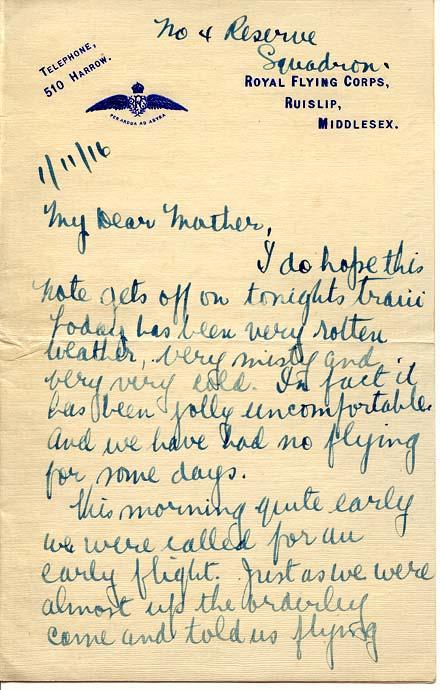 No 4 Reserve
Squadron.
TELEPHONE,
510 HARROW.
ROYAL FLYING CORPS,
RUISLIP,
MIDDLESEX.
PER ARDUA AD ASTRA
1/11/16
My Dear Mother,
I do hope this
note gets off on tonights train
Today has been very rotten
weather, very misty and
very very cold. In fact it
has been jolly uncomfortable.
And we have had no flying
for some days.
This morning quite early
we were called for an
early flight. Just as we were
almost up the orderley
came and told us flying